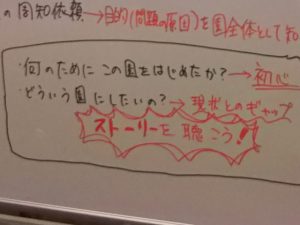 の周知依頼→目的(問題の原因)を園全体として知
・何のために この園をはじめたか?→初心
・どういう園にしたいの?→現状とのギャップ
ストーリーを聴こう!